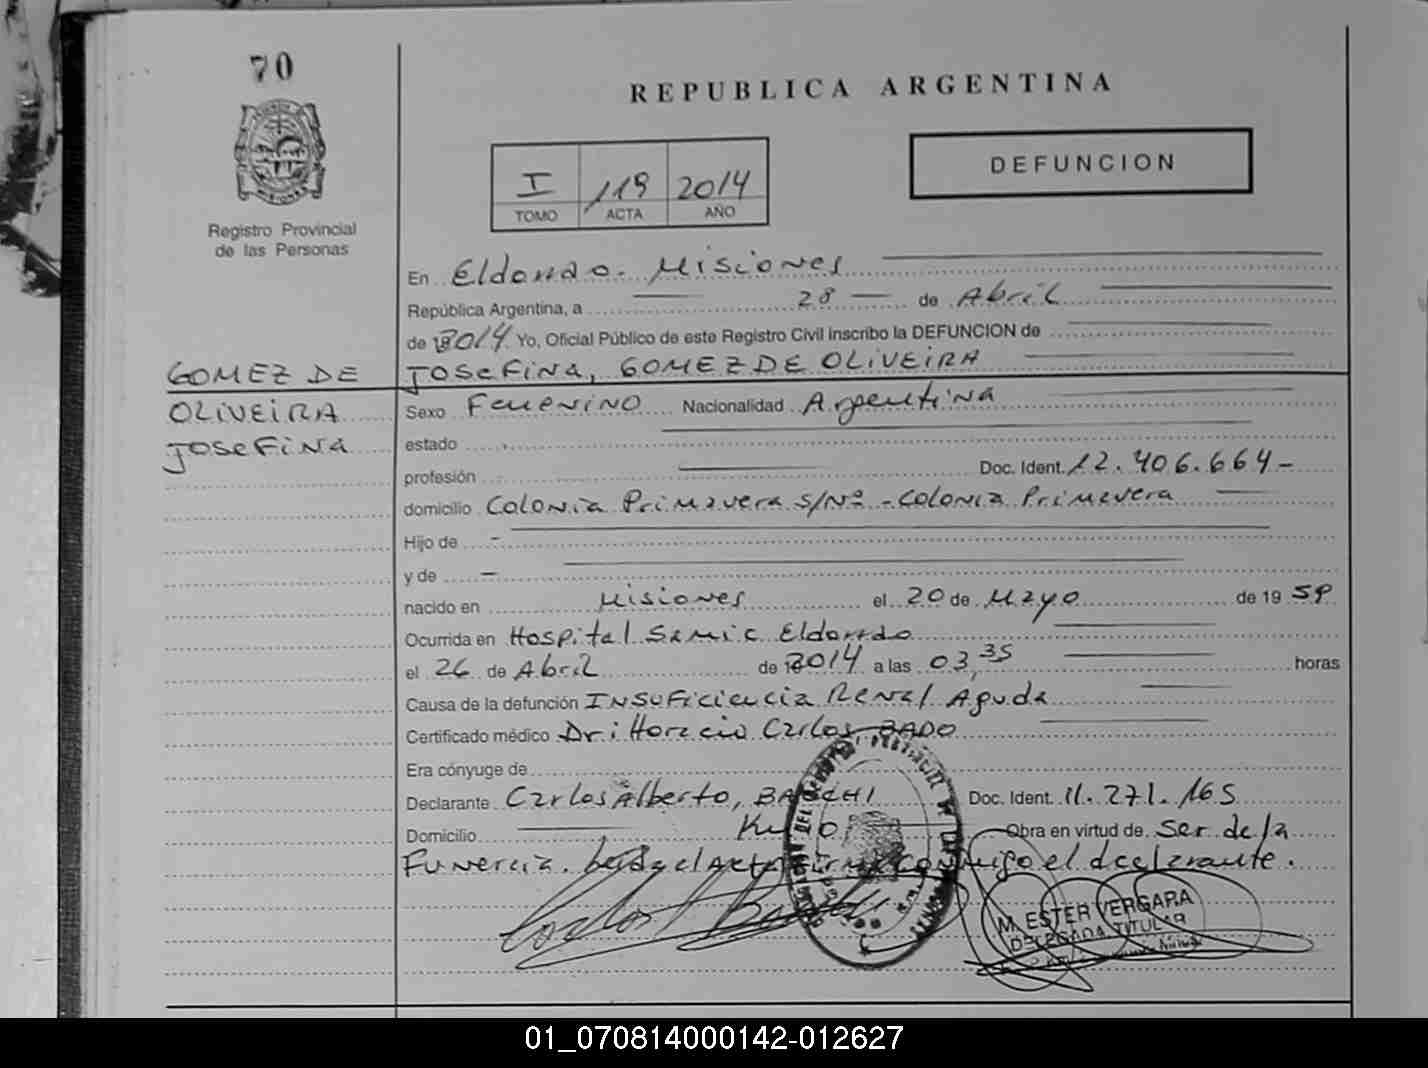 70
Registro Provincial
de las Personas
REPUBLICA ARGENTINA
I 119 2014
TOMO ACTA AÑO
DEFUNCION
En Eldorado. Misiones
República Argentina, a 28 de Abril
de 2014 Yo, Oficial Público de este Registro Civil inscribo la DEFUNCION de
GOMEZ DE
OLIVEIRA
JOSEFINA
JOSEFINA, GOMEZ DE OLIVEIRA
Sexo Femenino Nacionalidad Argentina
estado
profesión Doc. Ident. 12.406.664-
domicilio Colonia Primavera S/Nº - Colonia Primavera
Hijo de -
y de -
nacido en Misiones el 20 de Mayo de 19 59
Ocurrida en Hospital Samic Eldorado
el 26 de Abril de 2014 a las 03,35 horas
Causa de la defunción Insuficiencia Renal Aguda
Certificado médico Dr: Horacio Carlos BADO
Era cónyuge de
Declarante Carlos Alberto, Doc. Ident. 11.271.165
Domicilio Km Obra en virtud de Ser de la
Funeraria. Leida el Acta firma conmigo el declarante.
M. ESTER VERGARA
DELEGADA TITULAR
01_070814000142-012627